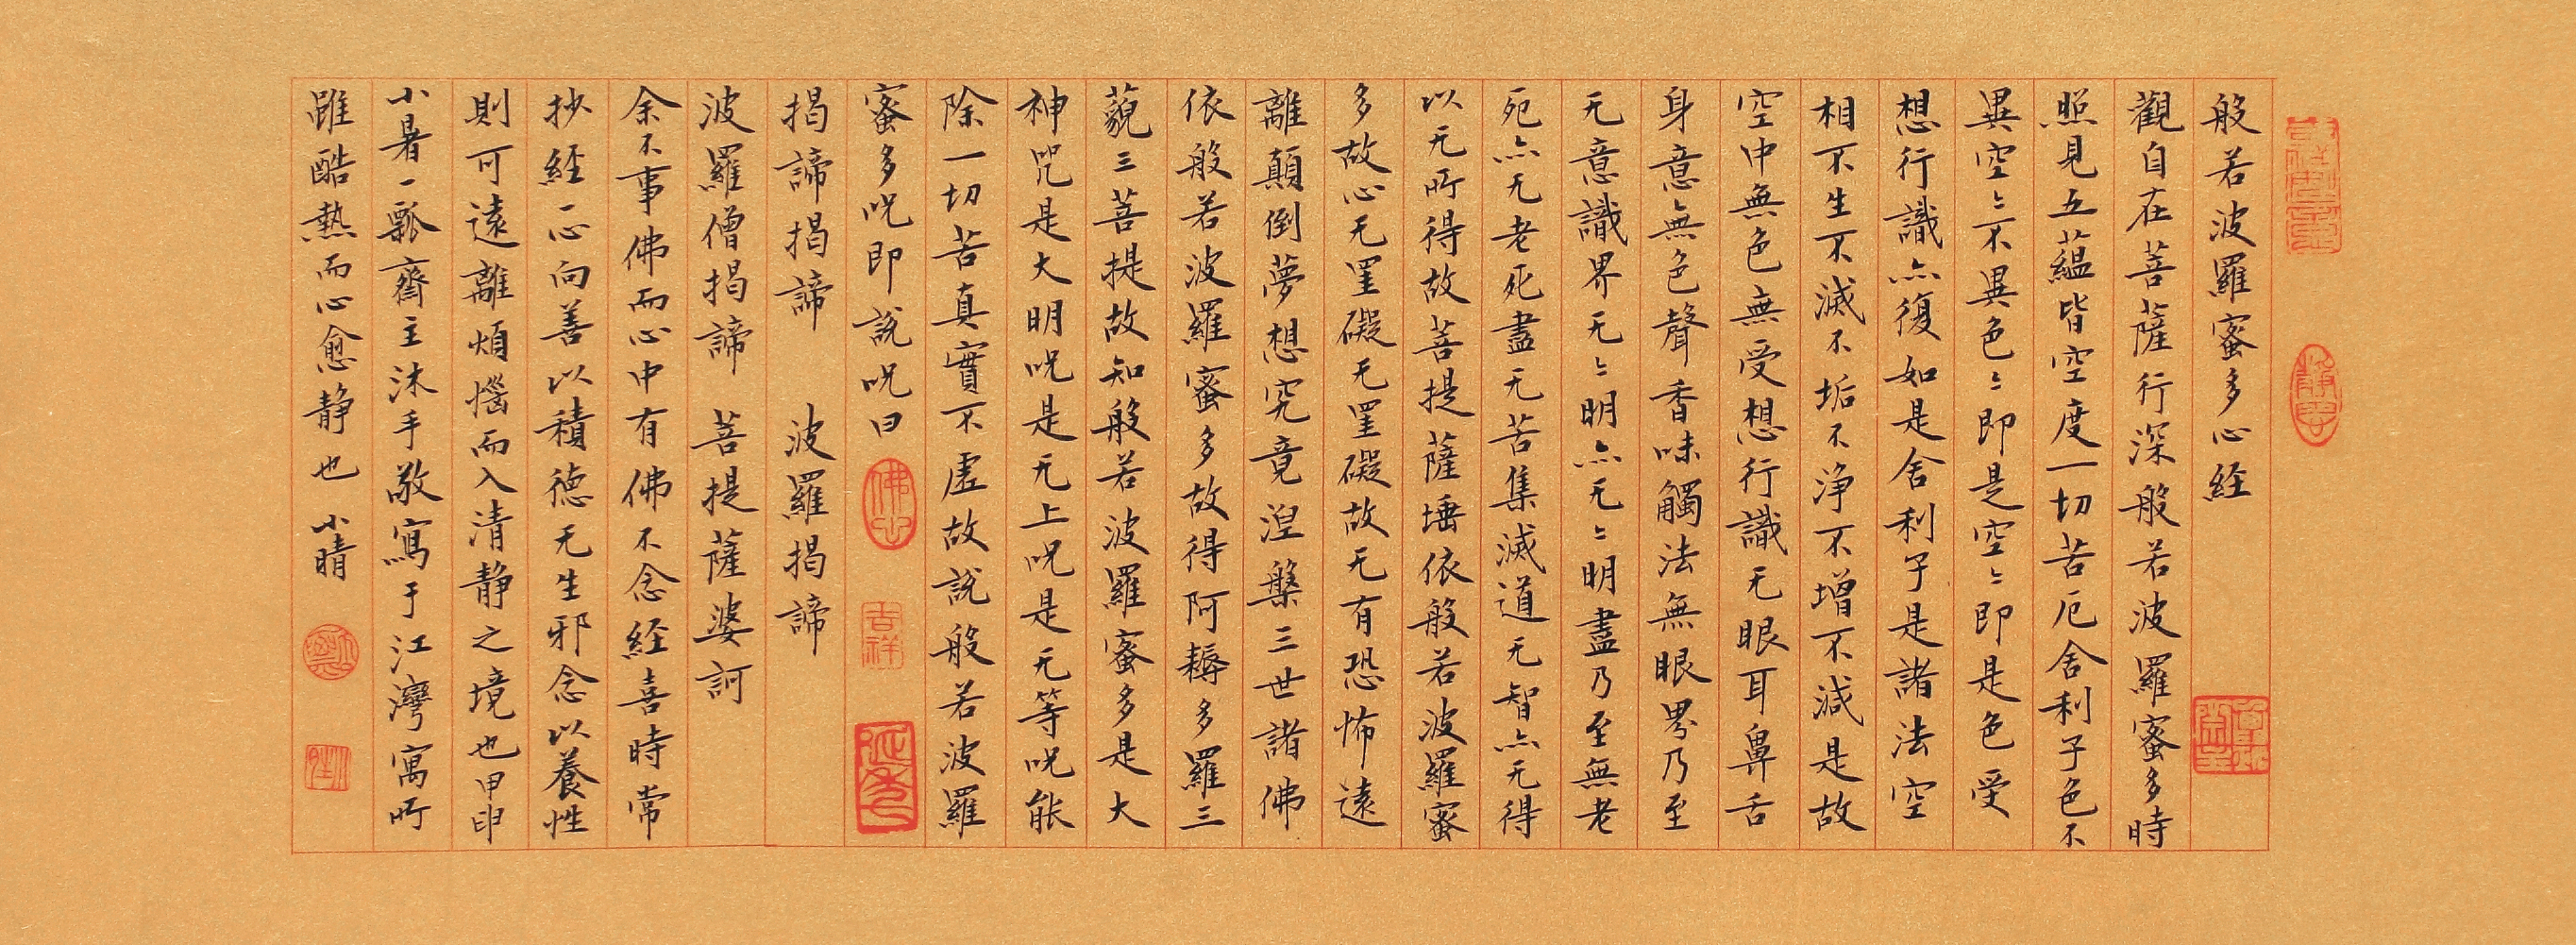 般若波羅蜜多心経
觀自在菩薩行深般若波羅蜜多時
照見五蘊皆空度一切苦厄舍利子色不
異空〻不異色〻即是空〻即是色受
想行識亦復如是舍利子是諸法空
相不生不滅不垢不淨不增不減是故
空中無色無受想行識无眼耳鼻舌
身意無色聲香味觸法無眼界乃至
无意識界无〻明亦无〻明盡乃至無老
死亦无老死盡无苦集滅道无智亦无得
以无所得故菩提薩埵依般若波羅蜜
多故心无罣礙无罣礙故无有恐怖遠
離顛倒夢想究竟涅槃三世諸佛
依般若波羅蜜多故得阿耨多羅三
藐三菩提故知般若波羅蜜多是大
神咒是大明呪是无上呪是无等呪能
除一切苦真實不虛故說般若波羅
蜜多呪即說呪曰
揭諦揭諦 波羅揭諦
波羅僧揭諦 菩提薩婆訶
余不事佛而心中有佛不念経喜時常
抄経一心向善以積德无生邪念以養性
則可遠離煩惱而入清靜之境也甲申
小暑一瓢齋主沐手敬寫于江灣寓所
雖酷熱而心愈靜也 小晴
佛心
吉祥